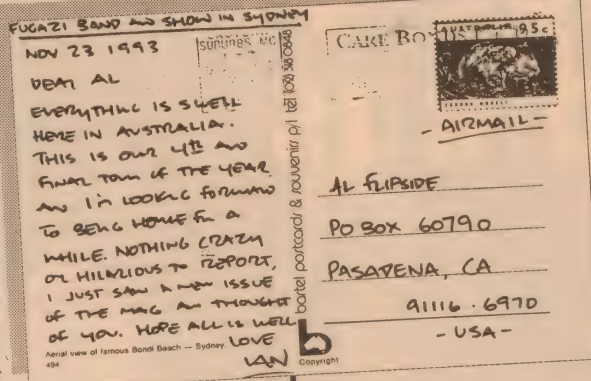 FUGAZI BAND AND SHOW IN SYDNEY
NOV 23 1993
DEAR AL
EVERYTHING IS SWELL
HERE IN AUSTRALIA.
THIS IS OUR 4th AND
FINAL TOUR OF THE YEAR
AND I'M LOOKING FORWARD
TO BEING HOME FOR A
WHILE. NOTHING CRAZY
OR HILARIOUS TO REPORT,
I JUST SAW A NEW ISSUE
OF THE MAG AND THOUGHT
OF YOU. HOPE ALL IS WELL
LOVE
IAN
Aerial view of famous Bondi Beach — Sydney.
494
SUBURBS MC
bartel postcards & souvenirs p/l tel (02)
b
Copyright
CARE
AUSTRALIA 95c
- AIRMAIL -
AL FLIPSIDE
PO BOX 60790
PASADENA, CA
91116 - 6970
- USA -